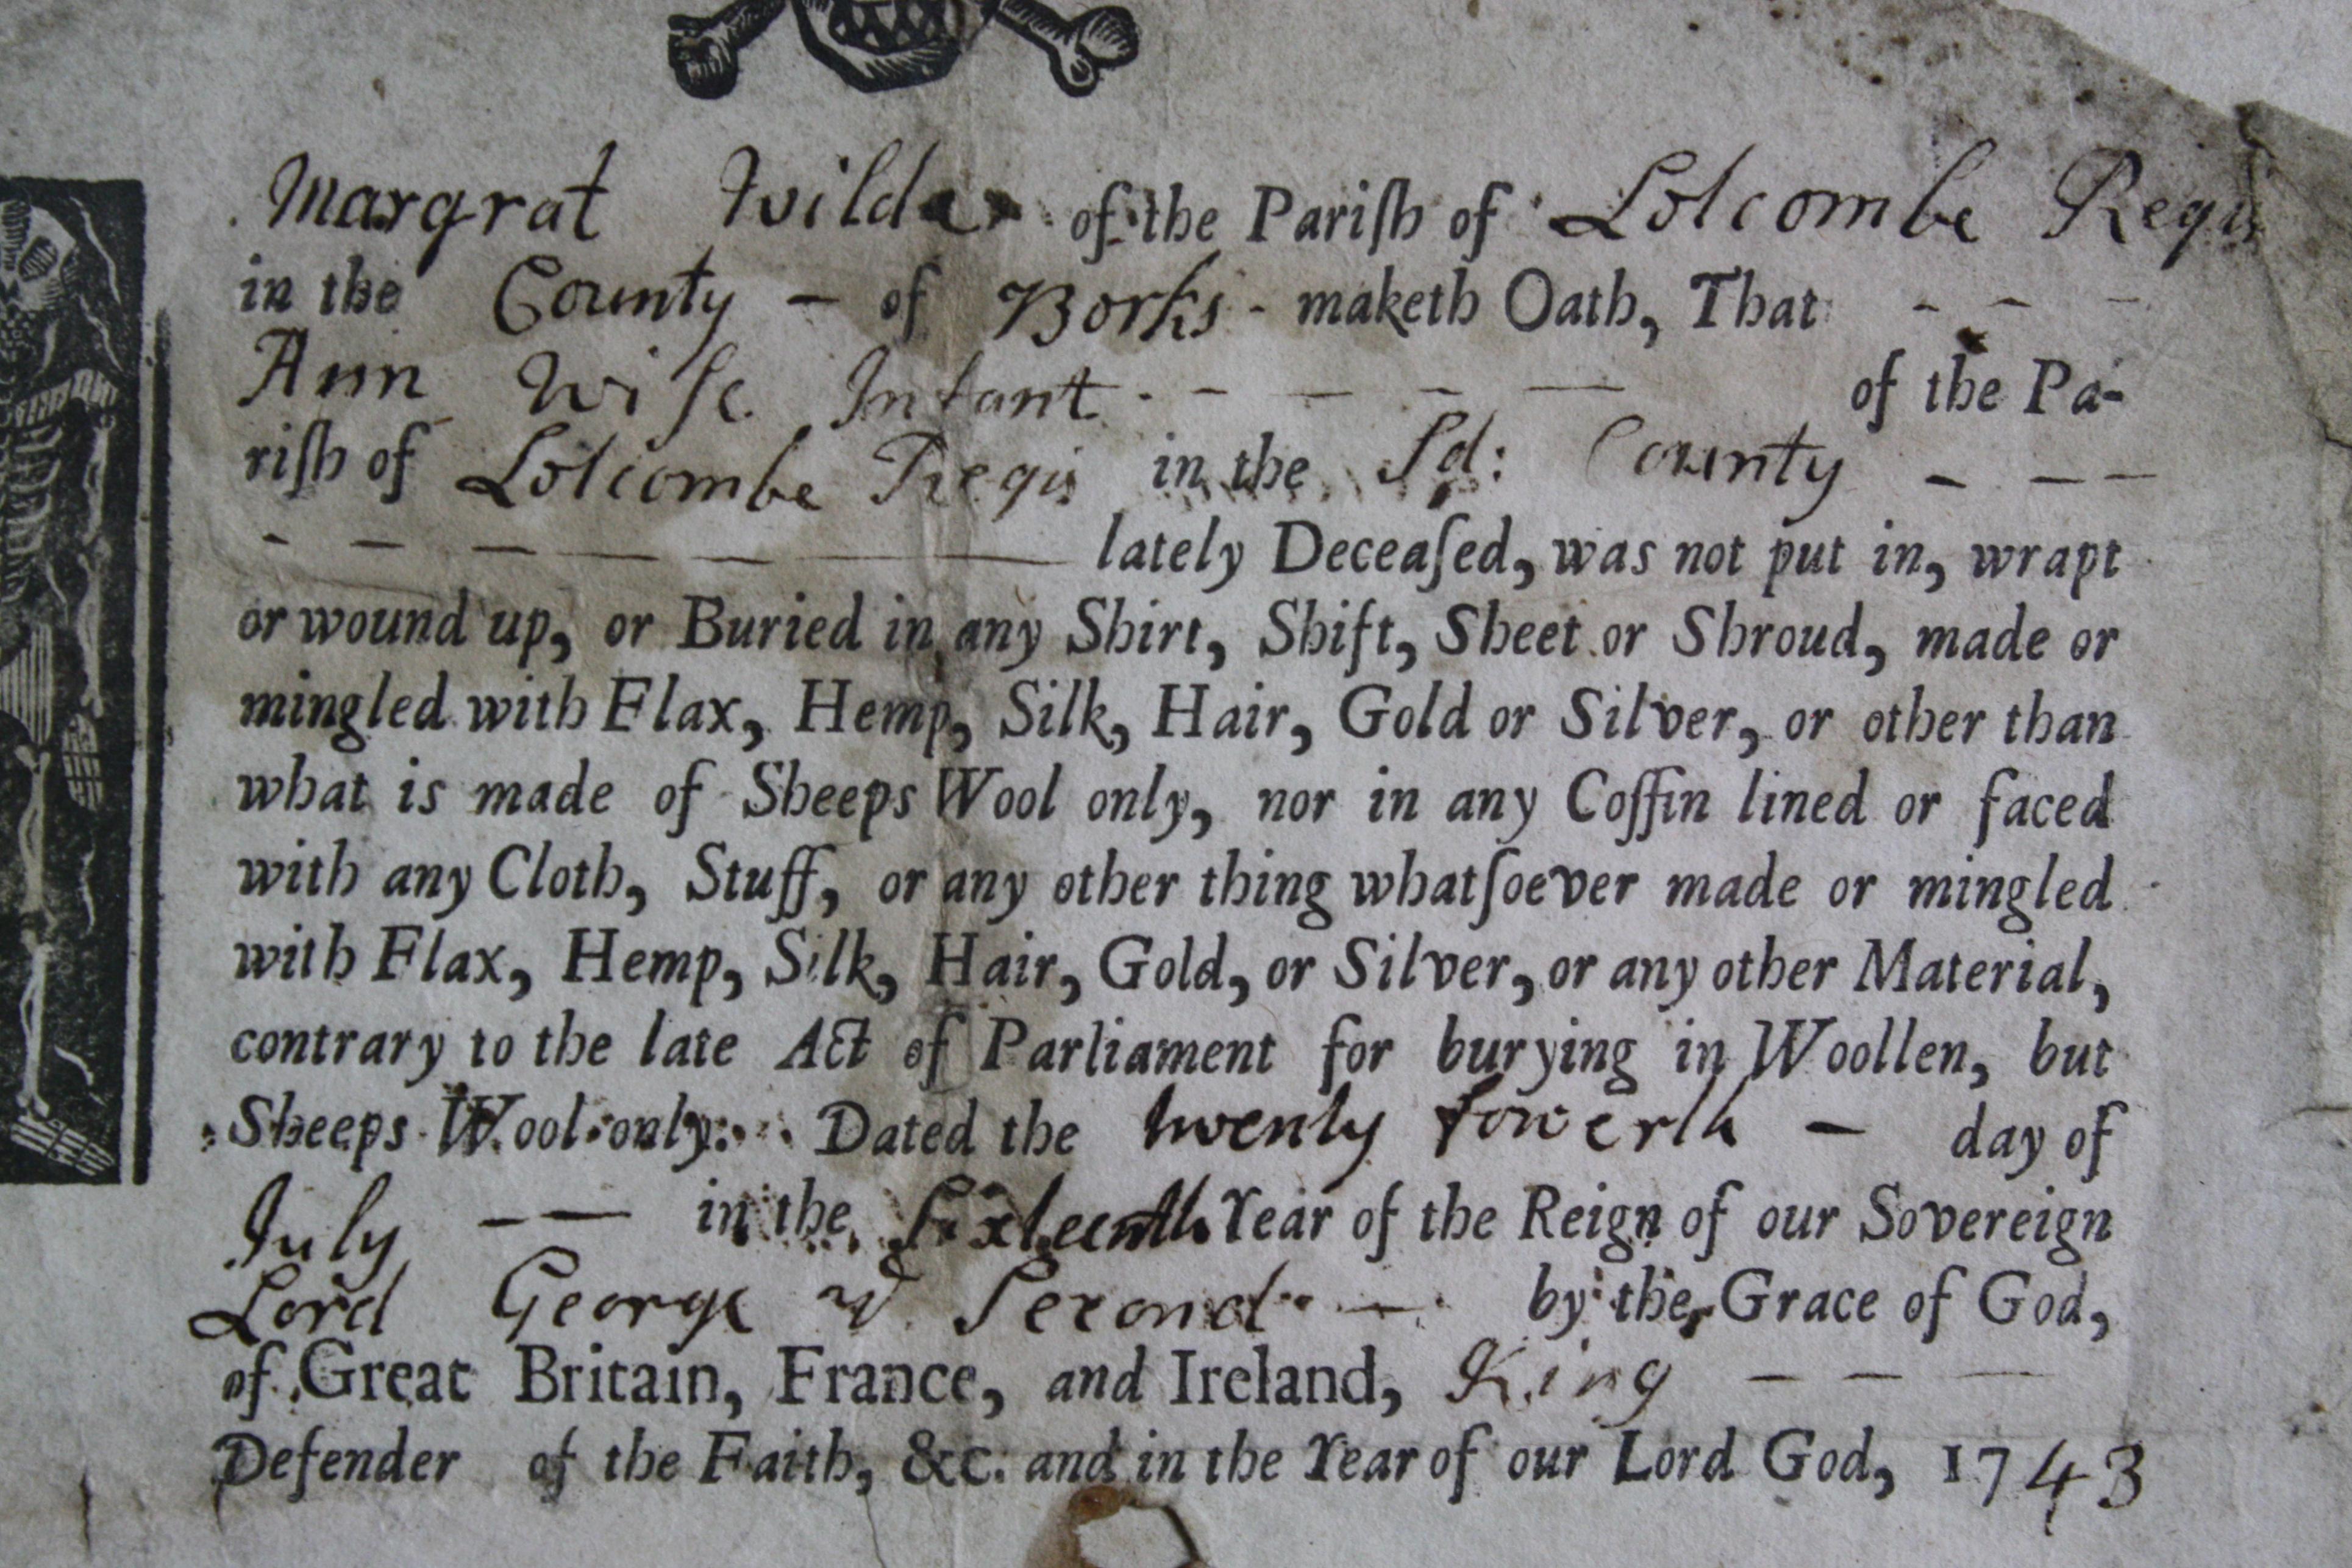 Margrat Wilder of the Pariſh of Lotcombe Regis
in the County – of Borks - maketh Oath, That - - -
Ann Wiſe Infant - - - - — of the Pa-
riſh of Lotcombe Regis in the Sd: County - - -
- - - — — — lately Deceaſed, was not put in, wrapt
or wound up, or Buried in any Shirt, Shift, Sheet or Shroud, made or
mingled with Flax, Hemp, Silk, Hair, Gold or Silver, or other than
what is made of Sheeps Wool only, nor in any Coffin lined or faced
with any Cloth, Stuff, or any other thing whatſoever made or mingled
with Flax, Hemp, Silk, Hair, Gold, or Silver, or any other Material,
contrary to the late Act of Parliament for burying in Woollen, but
Sheeps Wool only. Dated the twenty fowerth – day of
July - — in the Sixteenth Year of the Reign of our Sovereign
Lord George Second — by the Grace of God,
of Great Britain, France, and Ireland, King — — —
Defender of the Faith, &c. and in the Year of our Lord God, 1743